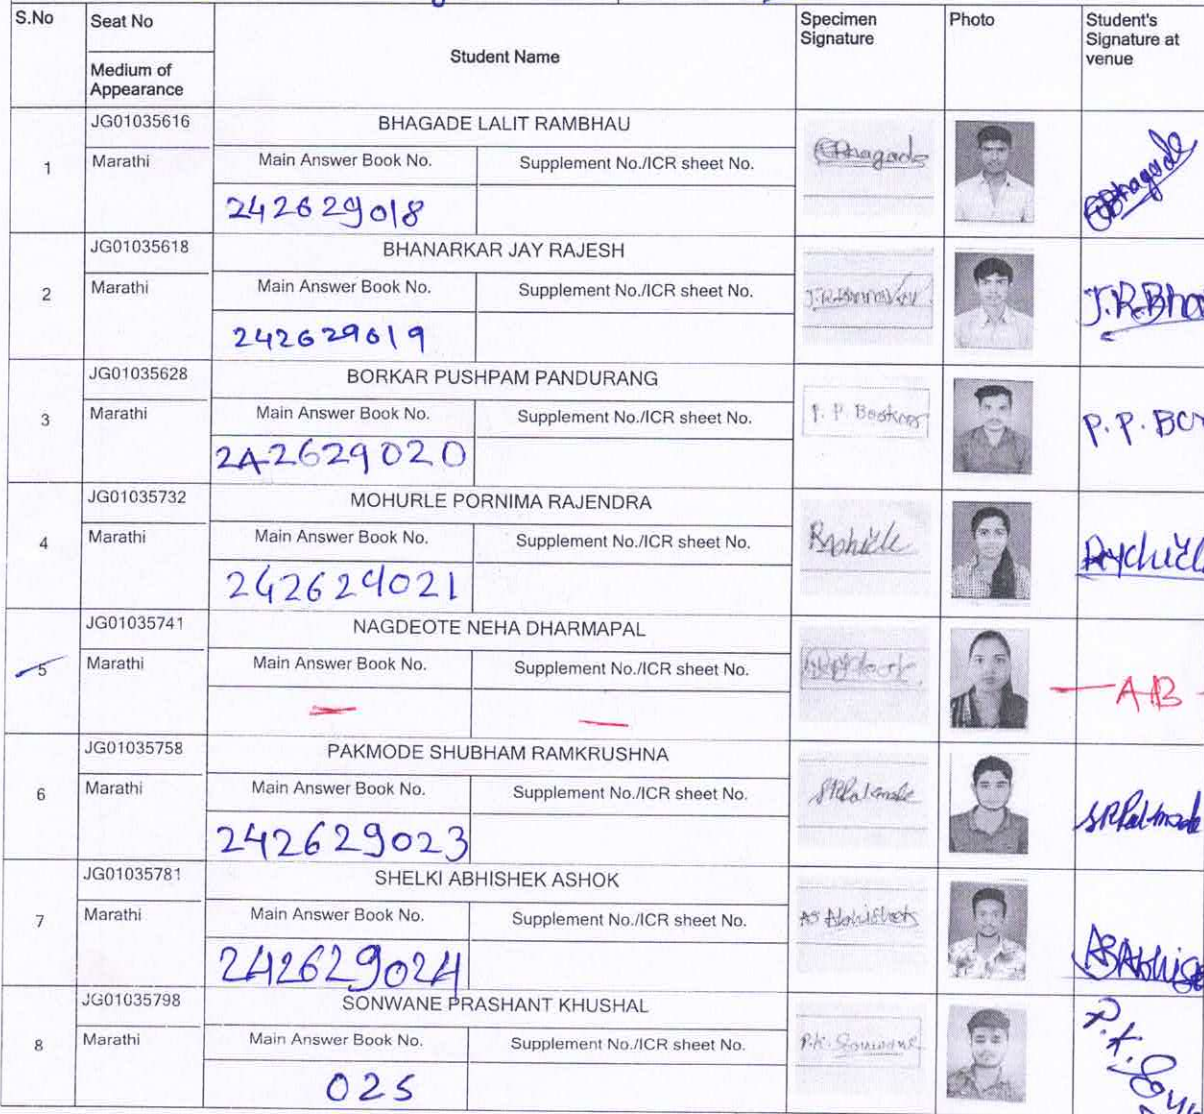 S.No Seat No Student Name Specimen Signature Photo Student's Signature at venue
Medium of Appearance
JG01035616 BHAGADE LALIT RAMBHAU
1 Marathi Main Answer Book No. Supplement No./ICR sheet No.
242629018
JG01035618 BHANARKAR JAY RAJESH
2 Marathi Main Answer Book No. Supplement No./ICR sheet No. J.R.Bha
242629019
JG01035628 BORKAR PUSHPAM PANDURANG
3 Marathi Main Answer Book No. Supplement No./ICR sheet No. P. P. P.P.
242629020
JG01035732 MOHURLE PORNIMA RAJENDRA
4 Marathi Main Answer Book No. Supplement No./ICR sheet No.
242629021
JG01035741 NAGDEOTE NEHA DHARMAPAL
5 Marathi Main Answer Book No. Supplement No./ICR sheet No.
— — — AB
JG01035758 PAKMODE SHUBHAM RAMKRUSHNA
6 Marathi Main Answer Book No. Supplement No./ICR sheet No.
242629023
JG01035781 SHELKI ABHISHEK ASHOK
7 Marathi Main Answer Book No. Supplement No./ICR sheet No.
242629024
JG01035798 SONWANE PRASHANT KHUSHAL
8 Marathi Main Answer Book No. Supplement No./ICR sheet No. P.K. Sonwane P.K.
025